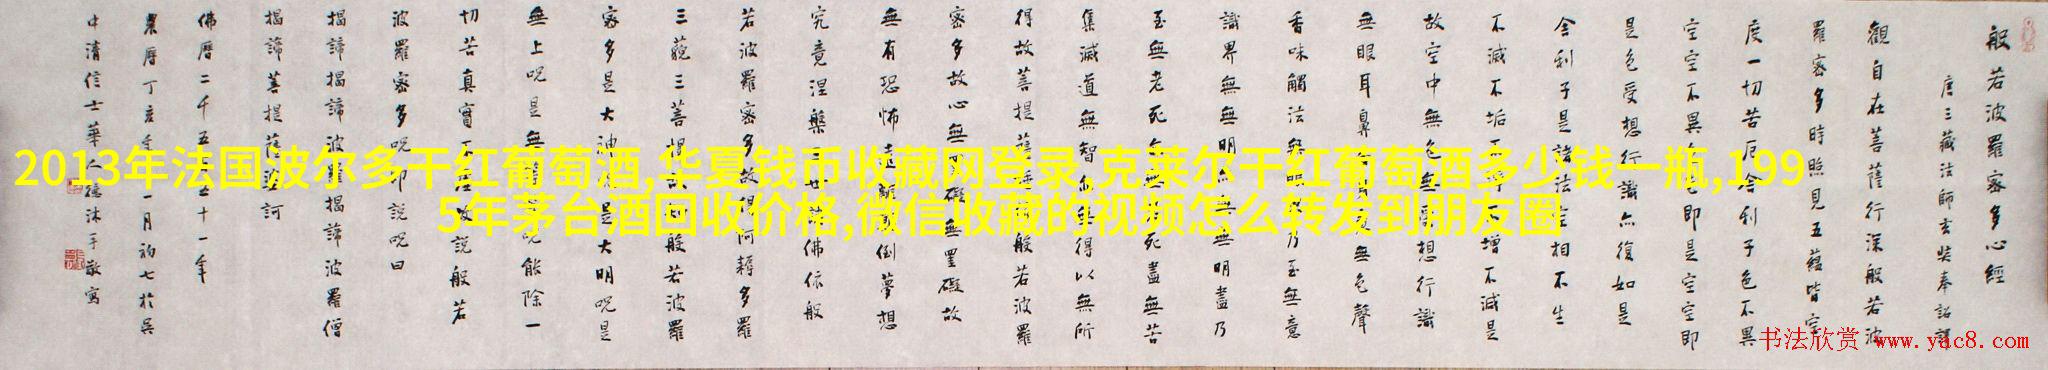 般若波羅密多心經
唐三藏法師玄奘奉詔譯
觀自在菩薩行深般若波
羅密多時照見五蘊皆空
度一切苦厄舍利子色不異
空空不異色色即是空空即
是色受想行識亦復如是
舍利子是諸法空相不生
不滅不垢不淨不增不減是
故空中無色無受想行識
無眼耳鼻舌身意無色聲
香味觸法無眼界乃至無意
識界無無明亦無無明盡乃
至無老死亦無老死盡無苦
集滅道無智亦無得以無所
得故菩提薩埵依般若波羅
密多故心無罣礙無罣礙故
無有恐怖遠離顛倒夢想
究竟涅槃三世諸佛依般
若波羅密多故得阿耨多羅
三藐三菩提故知般若波羅
密多是大神咒是大明咒是
無上咒是無等等咒能除一
切苦真實不虛故說般若
波羅密多咒即說咒曰
揭諦揭諦波羅揭諦波羅僧
揭諦菩提薩婆訶
佛曆二千五百五十一年
農曆丁亥年一月初七於吳
中清信士華人德沐手敬寫
2013年法国波尔多干红葡萄酒,华夏钱币收藏网登录,克莱尔干红葡萄酒多少钱一瓶,199
5年茅台酒回收价格,微信收藏的视频怎么转发到朋友圈
书法欣赏 www.yac8.com